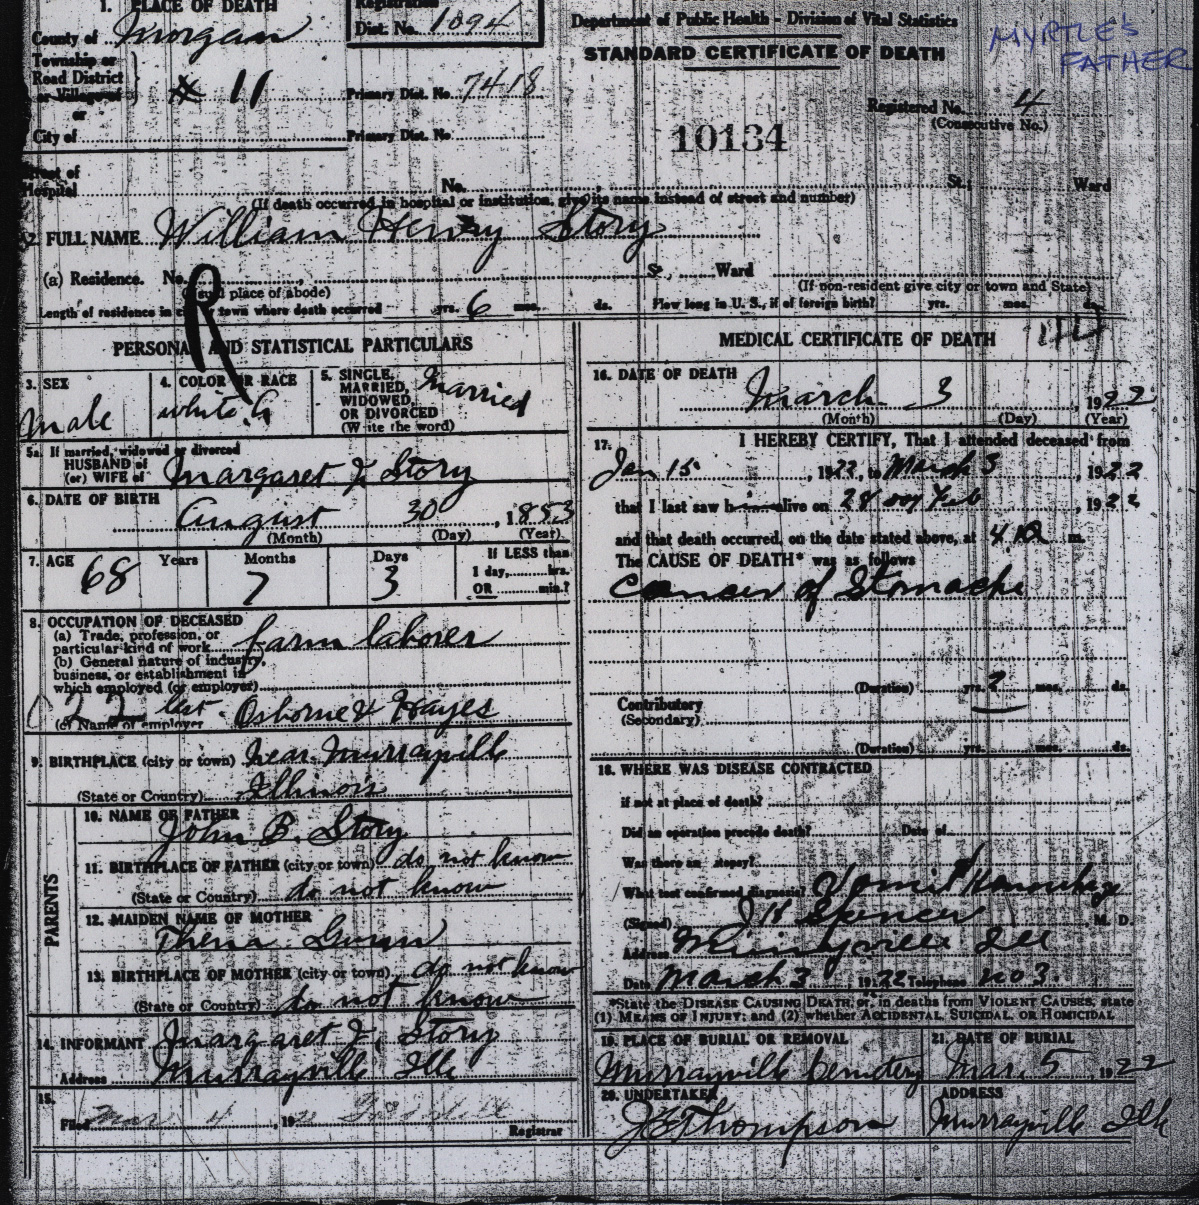 1. PLACE OF DEATH
County of Morgan
Township or
Road District
or Village of
# 11
or
City of
Registration
Dist. No. 1094
Primary Dist. No. 7418
Primary Dist. No.
Department of Public Health - Division of Vital Statistics
STANDARD CERTIFICATE OF DEATH
MYRTLE'S
FATHER
Registered No. 4
(Consecutive No.)
10134
Street of
Hospital No. St.; Ward
(If death occurred in hospital or institution, give its name instead of street and number)
2. FULL NAME William Henry Story
(a) Residence. No. St. Ward
(Usual place of abode)
(If non-resident give city or town and State)
Length of residence in city town where death occurred yrs. 6 mos. ds. How long in U. S., if of foreign birth? yrs. mos. ds.
R
PERSONAL AND STATISTICAL PARTICULARS
3. SEX
Male
4. COLOR OR RACE
white
5. SINGLE,
MARRIED,
WIDOWED,
OR DIVORCED
(Write the word)
Married
5a. If married, widowed or divorced
HUSBAND of
(or) WIFE of Margaret J Story
6. DATE OF BIRTH
August 30, 1853
(Month) (Day) (Year)
7. AGE 68 Years 7 Months 3 Days
If LESS than
1 day, hrs.
OR min.?
8. OCCUPATION OF DECEASED
(a) Trade, profession, or
particular kind of work farm laborer
(b) General nature of industry,
business, or establishment in
which employed (or employer)
(c) Name of employer Osborne & Hayes
9. BIRTHPLACE (city or town) near Murrayville
(State or Country) Illinois
PARENTS
10. NAME OF FATHER
John B. Story
11. BIRTHPLACE OF FATHER (city or town) do not know
(State or Country) do not know
12. MAIDEN NAME OF MOTHER
13. BIRTHPLACE OF MOTHER (city or town) do not know
(State or Country) do not know
14. INFORMANT Margaret J. Story
Address Murrayville Ill
15.
Filed Mar 4, 192
Registrar
MEDICAL CERTIFICATE OF DEATH
16. DATE OF DEATH
March 3, 1922
(Month) (Day) (Year)
17. I HEREBY CERTIFY, That I attended deceased from
Jan 15, 1922, to March 3 1922
that I last saw h alive on 28 Feb, 1922
and that death occurred, on the date stated above, at 4 m.
The CAUSE OF DEATH* was as follows
Cancer of Stomache
(Duration) yrs. ? mos. ds.
Contributory
(Secondary)
(Duration) yrs. mos. ds.
18. WHERE WAS DISEASE CONTRACTED
if not at place of death?
Did an operation precede death? Date of
Was there an autopsy?
What test confirmed diagnosis? Vomit
(Signed) J H Spencer, M. D.
Address Murrayville Ill
Date March 3, 1922 Telephone no 3.
*State the DISEASE CAUSING DEATH, or, in deaths from VIOLENT CAUSES, state
(1) MEANS OF INJURY; and (2) whether ACCIDENTAL, SUICIDAL, OR HOMICIDAL
19. PLACE OF BURIAL OR REMOVAL
Murrayville Cemetery
21. DATE OF BURIAL
Mar. 5 1922
20. UNDERTAKER
J E Thompson
ADDRESS
Murrayville Ill